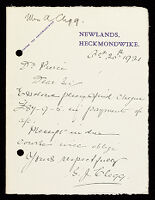 Mrs A. Clegg.
NEWLANDS,
HECKMONDWIKE.
Oct 20th 1921
Dr Peirce
Dear Sir
Enclosed please find cheque
£89-9-6 in payment of
a/c.
Receipt in due
course will oblige
Yours respectfully
E. J. Clegg.